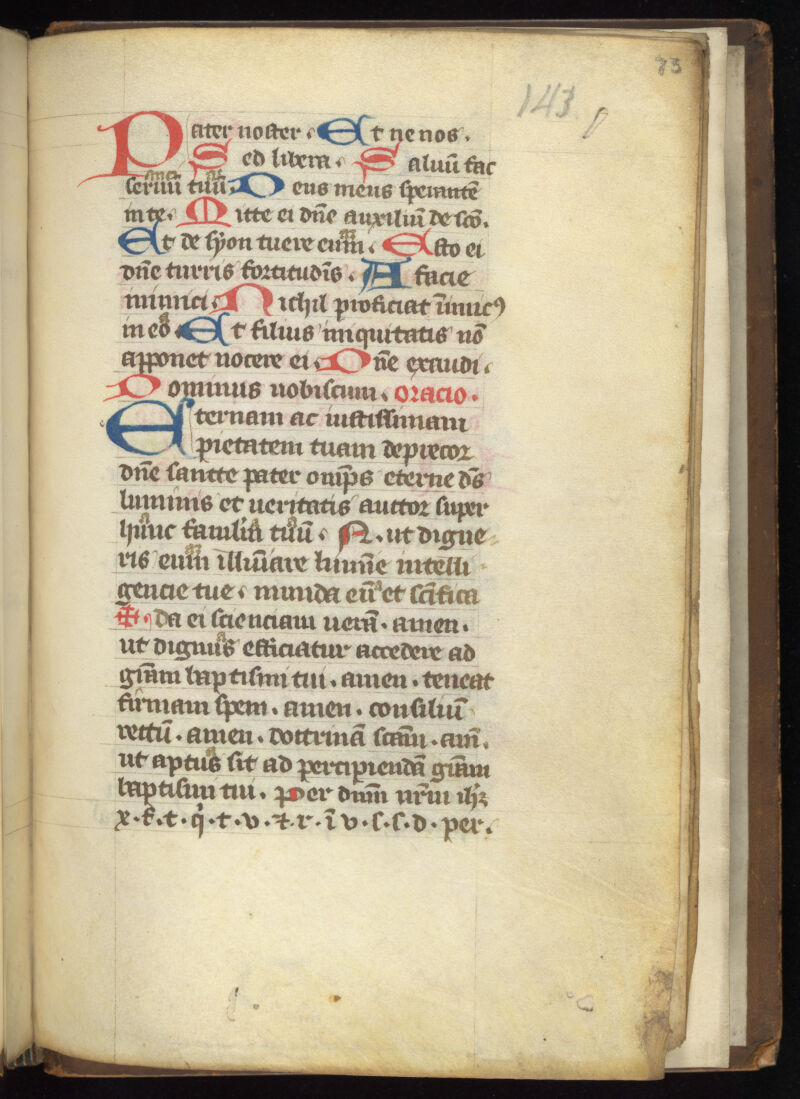 83
143
Pater noster. Et ne nos.
Sed libera. Saluū fac
seruū tuū. Deus meus sperantē
in te. Mitte ei dn̄e auxiliū de scō.
Et de syon tuere eum. Esto ei
dn̄e turris fortitudīs. A facie
inimici. Nichil proficiat īimicꝰ
in eo. Et filius iniquitatis nō
apponet nocere ei. Dn̄e exaudi.
Dominus uobiscum. oracio.
Eternam ac iustissimam
pietatem tuam deprecor
dn̄e sancte pater om̄ps eterne ds̄
luminis et ueritatis auctor super
hunc famulū tuū. N. ut digne
ris eum illūiare lumīe intelli
gencie tue. munda eū et scīfica
✠. da ei scienciam uerā. amen.
ut dignus efficiatur accedere ad
grām baptismi tui. amen. teneat
firmam spem. amen. consiliū
rectū. amen. doctrinā scām. am̄.
ut aptus sit ad percipiendā grām
baptismi tui. Per dn̄m nr̄m ihꝫ
x. f. t. q̇. t. v. ⁊. r. ī v. s. s. d. per.